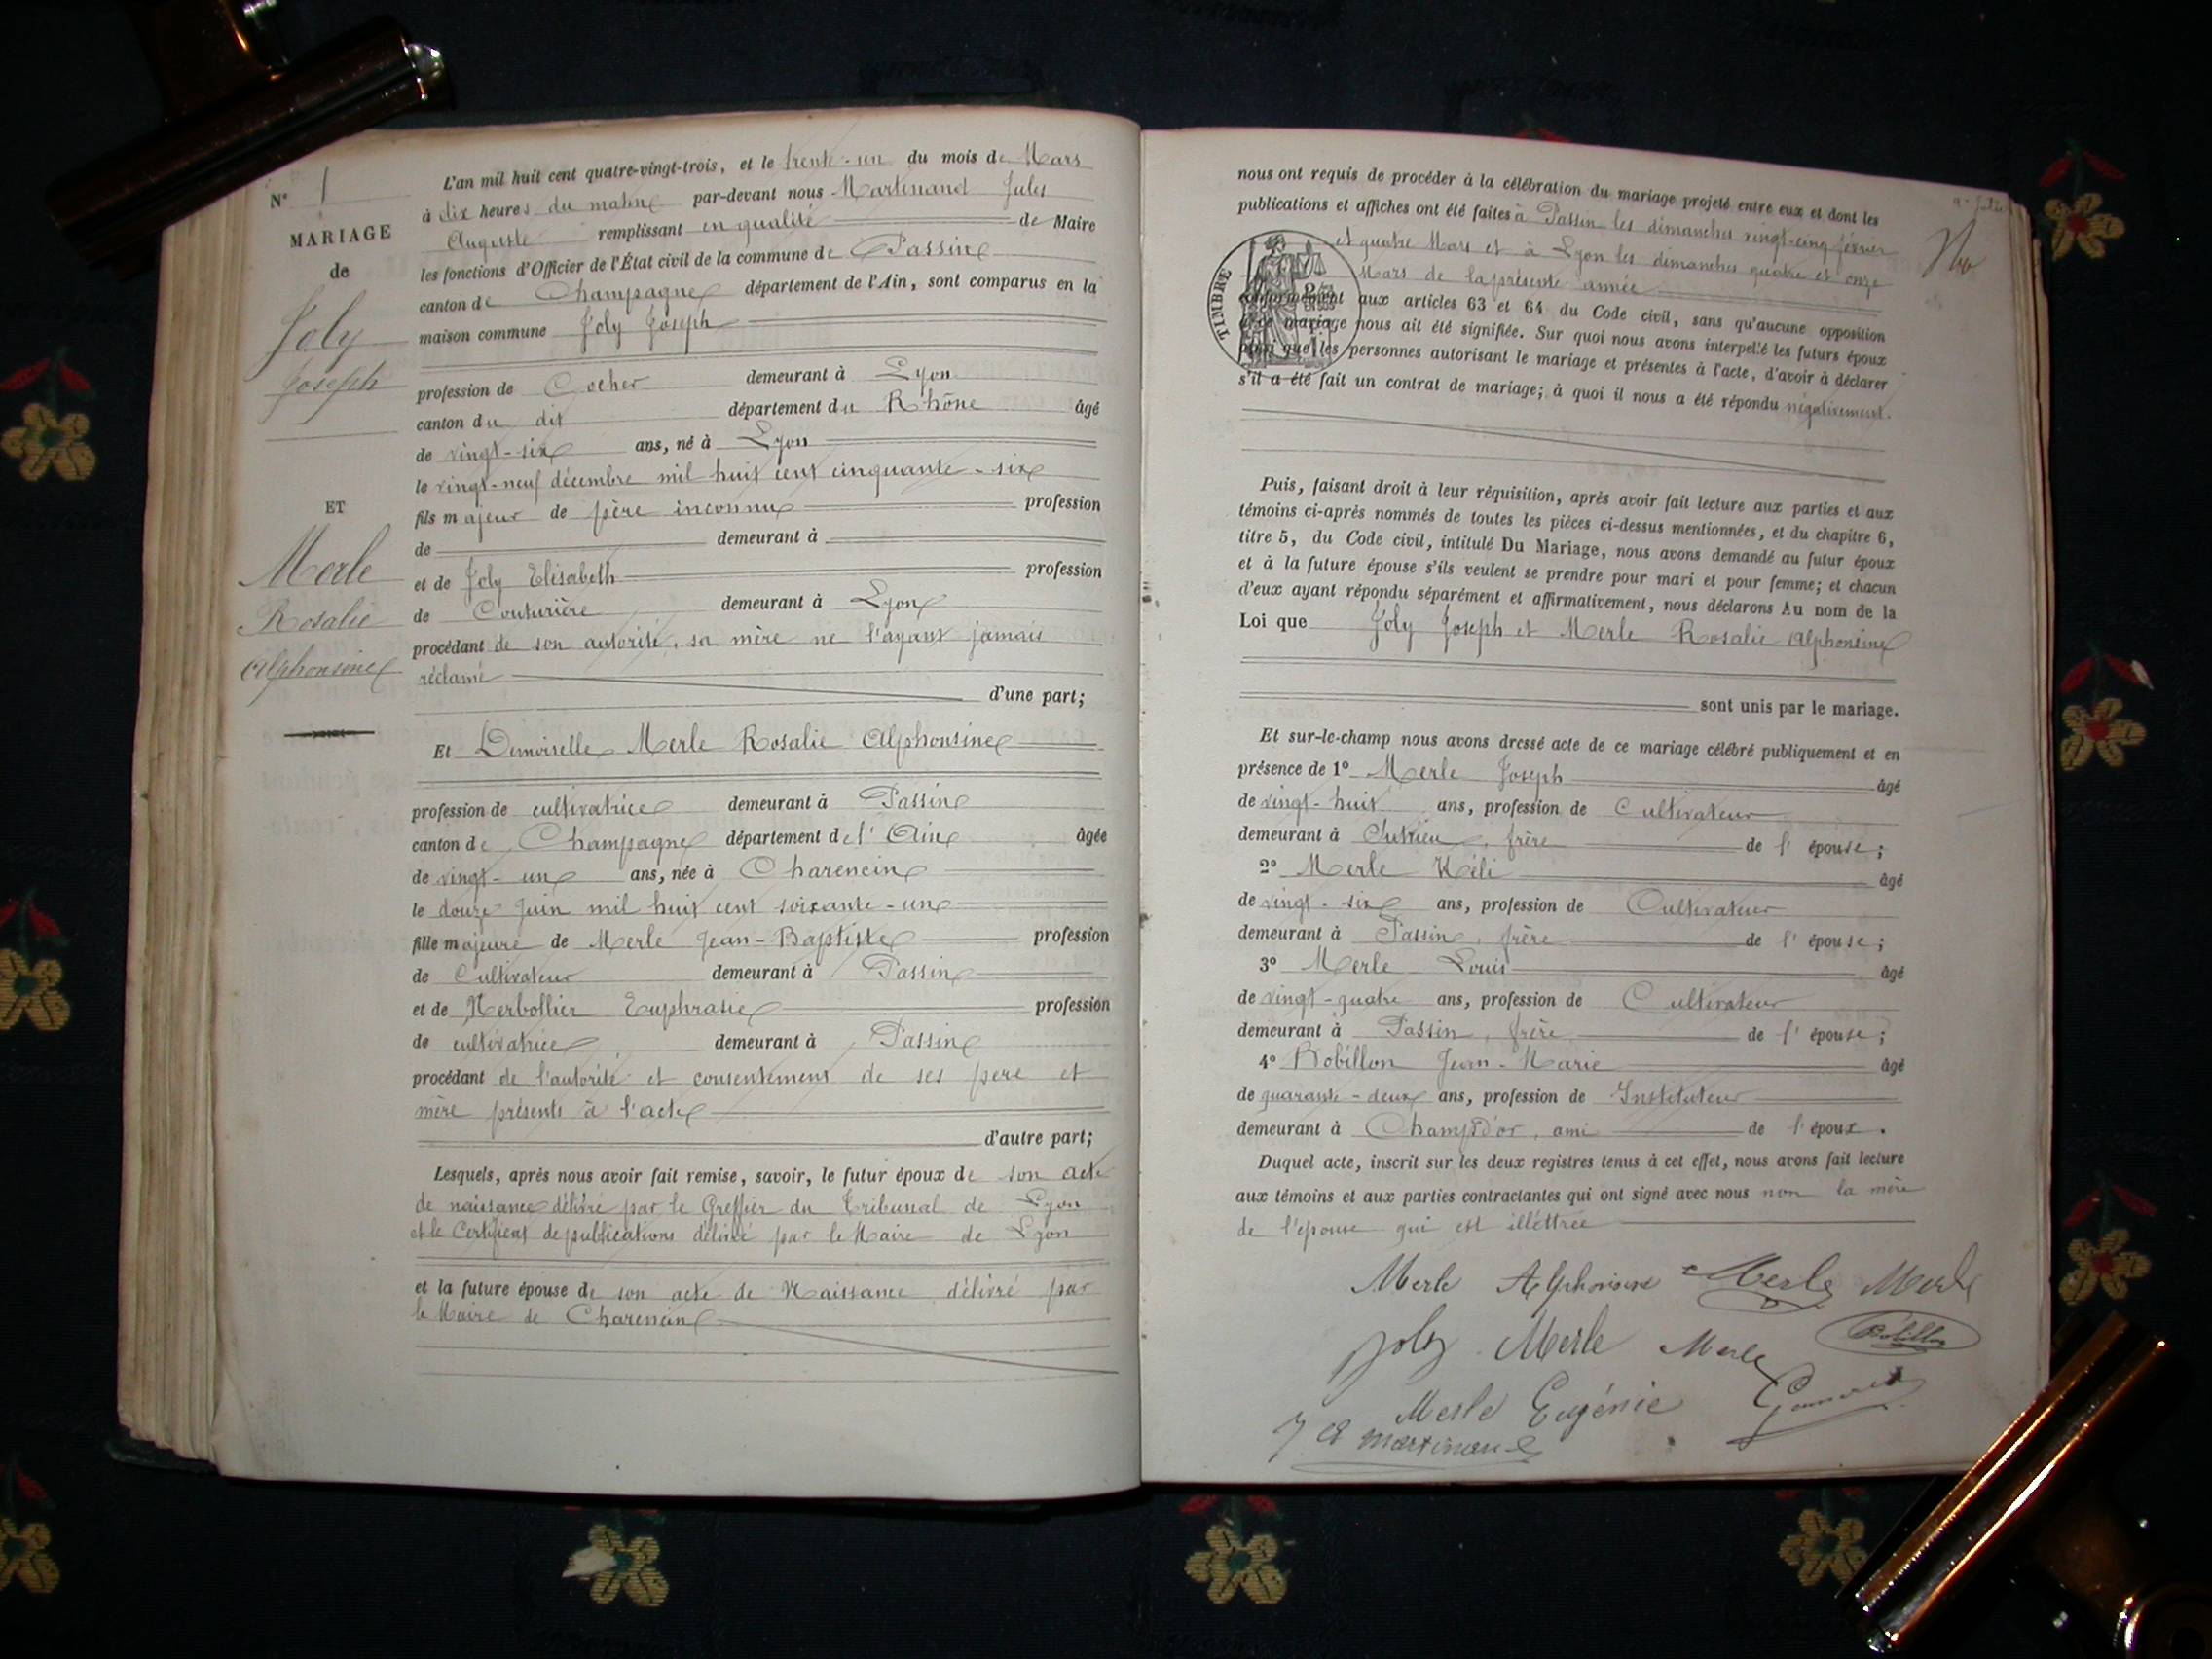 N° 1
MARIAGE
de
Joly
Joseph
ET
Merle
Rosalie
Alphonsine
L'an mil huit cent quatre-vingt-trois, et le trente-un du mois de Mars
à dix heures du matin par-devant nous Martinand Jules
Auguste remplissant en qualité de Maire
les fonctions d'Officier de l'État civil de la commune de Passin
canton de Champagne département de l'Ain, sont comparus en la
maison commune Joly Joseph
profession de Cocher demeurant à Lyon
canton du dit département du Rhône âgé
de vingt-six ans, né à Lyon
le vingt-neuf décembre mil huit cent cinquante-six
fils majeur de père inconnu profession
de demeurant à
et de Joly Elisabeth profession
de Couturière demeurant à Lyon
procédant de son autorité, sa mère ne l'ayant jamais
réclamé
d'une part;
Et Demoiselle Merle Rosalie Alphonsine
profession de cultivatrice demeurant à Passin
canton de Champagne département de l'Ain âgée
de vingt-un ans, née à Charencin
le douze Juin mil huit cent soixante-un
fille majeure de Merle Jean-Baptiste profession
de Cultivateur demeurant à Passin
et de Herbollier Euphrasie profession
de cultivatrice demeurant à Passin
procédant de l'autorité et consentement de ses pere et
mère présents à l'acte
d'autre part;
Lesquels, après nous avoir fait remise, savoir, le futur époux de son acte
de naissance délivré par le Greffier du Tribunal de Lyon
et le Certificat de publications délivré par le Maire de Lyon
et la future épouse de son acte de Naissance délivré par
le Maire de Charencin
nous ont requis de procéder à la célébration du mariage projeté entre eux et dont les
publications et affiches ont été faites à Passin les dimanches vingt-cinq février
et quatre Mars et à Lyon les dimanches quatre et onze
Mars de la présente année
TIMBRE
conformément aux articles 63 et 64 du Code civil, sans qu'aucune opposition
mariage nous ait été signifiée. Sur quoi nous avons interpellé les futurs époux
ainsi que les personnes autorisant le mariage et présentes à l'acte, d'avoir à déclarer
s'il a été fait un contrat de mariage; à quoi il nous a été répondu négativement.
Puis, faisant droit à leur réquisition, après avoir fait lecture aux parties et aux
témoins ci-après nommés de toutes les pièces ci-dessus mentionnées, et du chapitre 6,
titre 5, du Code civil, intitulé Du Mariage, nous avons demandé au futur époux
et à la future épouse s'ils veulent se prendre pour mari et pour femme; et chacun
d'eux ayant répondu séparément et affirmativement, nous déclarons Au nom de la
Loi que Joly Joseph et Merle Rosalie Alphonsine
sont unis par le mariage.
Et sur-le-champ nous avons dressé acte de ce mariage célébré publiquement et en
présence de 1° Merle Joseph âgé
de vingt-huit ans, profession de Cultivateur
demeurant à frère de l'épouse;
2° Merle âgé
de vingt-six ans, profession de Cultivateur
demeurant à Passin, frère de l'épouse;
3° Merle Louis âgé
de vingt-quatre ans, profession de Cultivateur
demeurant à Passin, frère de l'épouse;
4° Bobillon Jean-Marie âgé
de quarante-deux ans, profession de Instituteur
demeurant à Champd'or, ami de l'époux.
Duquel acte, inscrit sur les deux registres tenus à cet effet, nous avons fait lecture
aux témoins et aux parties contractantes qui ont signé avec nous non la mère
de l'épouse qui est illéttrée
Merle Alphonsine Merle Merle
Joly Merle Merle Bobillon
Merle Eugénie
J A Martinand